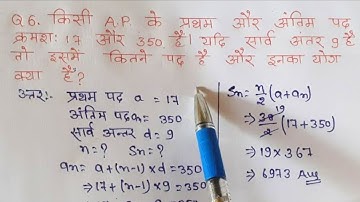 Q6. किसी A.P. के प्रथम और अंतिम पद
क्रमशः 17 और 350 है। यदि सार्व अंतर 9 है
तो इसमें कितने पद है और इनका योग
क्या है?
उत्तरः- प्रथम पद a = 17
अंतिम पद an = 350
सार्व अन्तर d = 9
n = ? Sn = ?
an = a+(n-1)×d = 350
⇒ 17+(n-1)×9 = 350
Sn = n/2 (a+an)
⇒ 38/2 (17+350)
19
⇒ 19×367
⇒ 6973 Ans